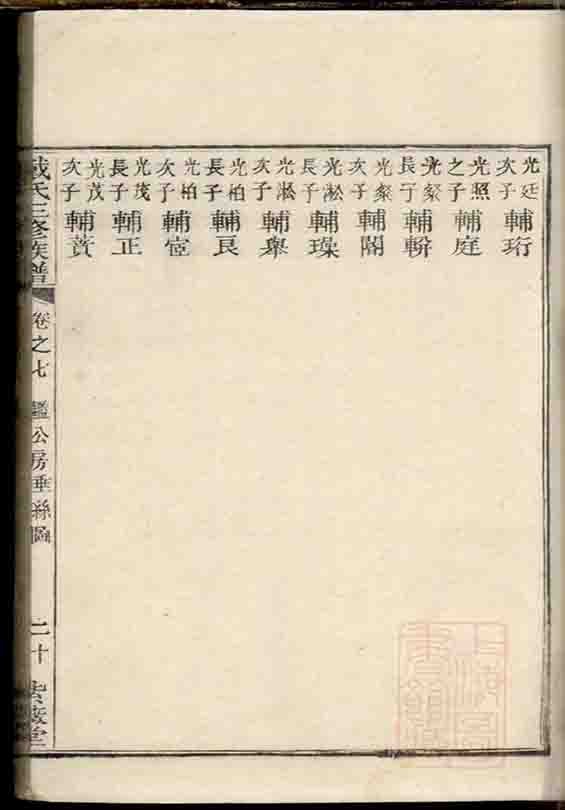 光廷次子輔珩
光照之子輔庭
光燦長子輔軿
光燦次子輔閣
光淞長子輔璪
光淞次子輔舉
光柏長子輔良
光柏次子輔宦
光茂長子輔正
光茂次子輔蕡
戴氏三修族譜
卷之七
鑑公房垂絲圖
二十
上海圖書館藏